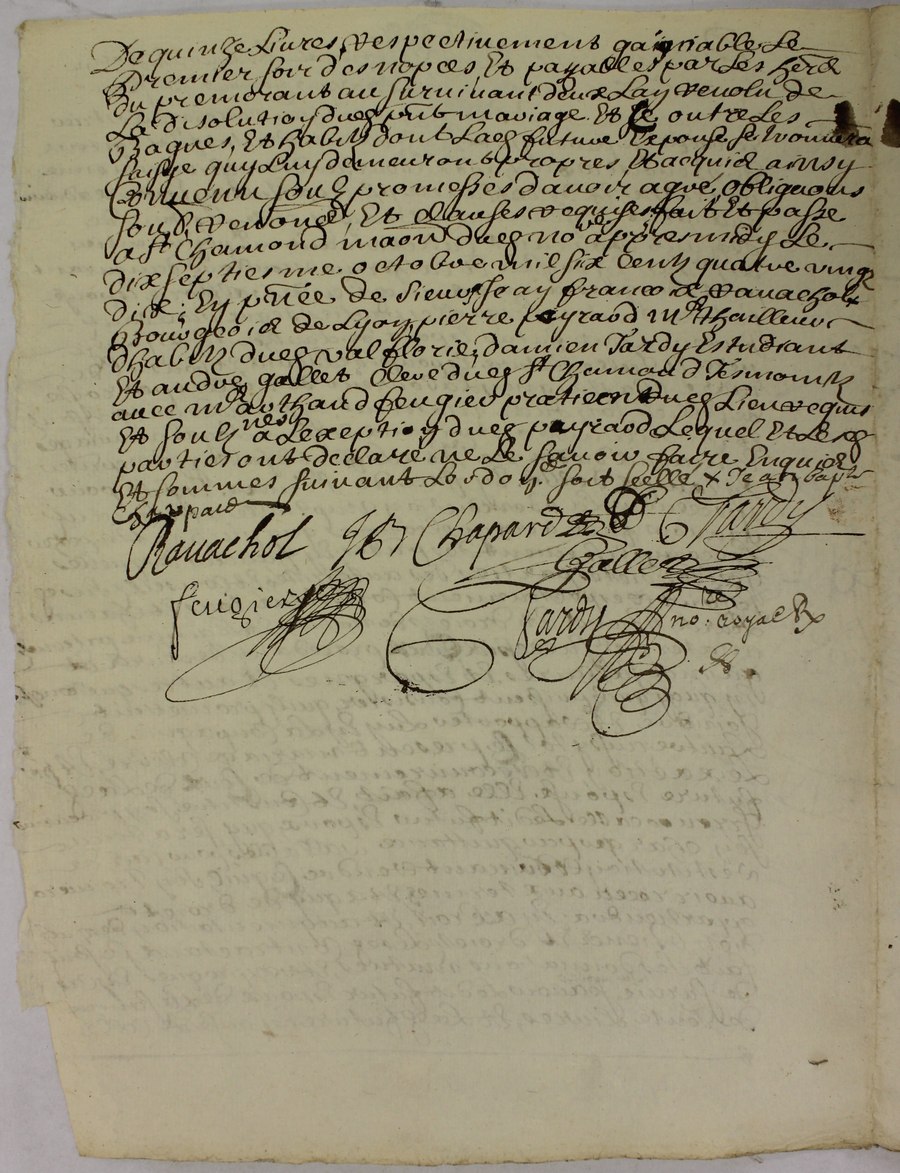 De quinze Livres respectivement gaignable Le
Premier soir des nopces, Et payables par Les herrs
Du premorant au survivant deux Lan revolu de
La disolution dud prnt mariage Et Ce outre Les
Bagues, Et habitz dont Lad future Espouse se trouvera
saisye quy Luy demeuront propres Et acquis ainsy
Convenu soubz promesses davoir agré, obligaons
soubz, renons, Et clauses requises fait Et passé
a St Chamond maon dud nore appres midy Le
dix septiesme octobre mil six Centz quatre vingt
Dix; En pnce de Sieur Jean francois ravachol
Bourgeois de Lyon, pierre peyraod Me thailleur
dhabitz dud valflorie, damien Tardy Estudiant
Et andre gallet Clerc dud St Chamond Tesmointz
avec Me arthaud feugier praticien dud Lieu requis
Et soubznes a Lexeption dud payraod Lequel Et Lesd
parties ont declaré ne Le scavoir faire Enquis
Et sommes suivant Lesdo soit scellé x Jean bapte
Chappard
Ravachol Chapard Tardy
Gallet
feugier Tardy no. royal Rx